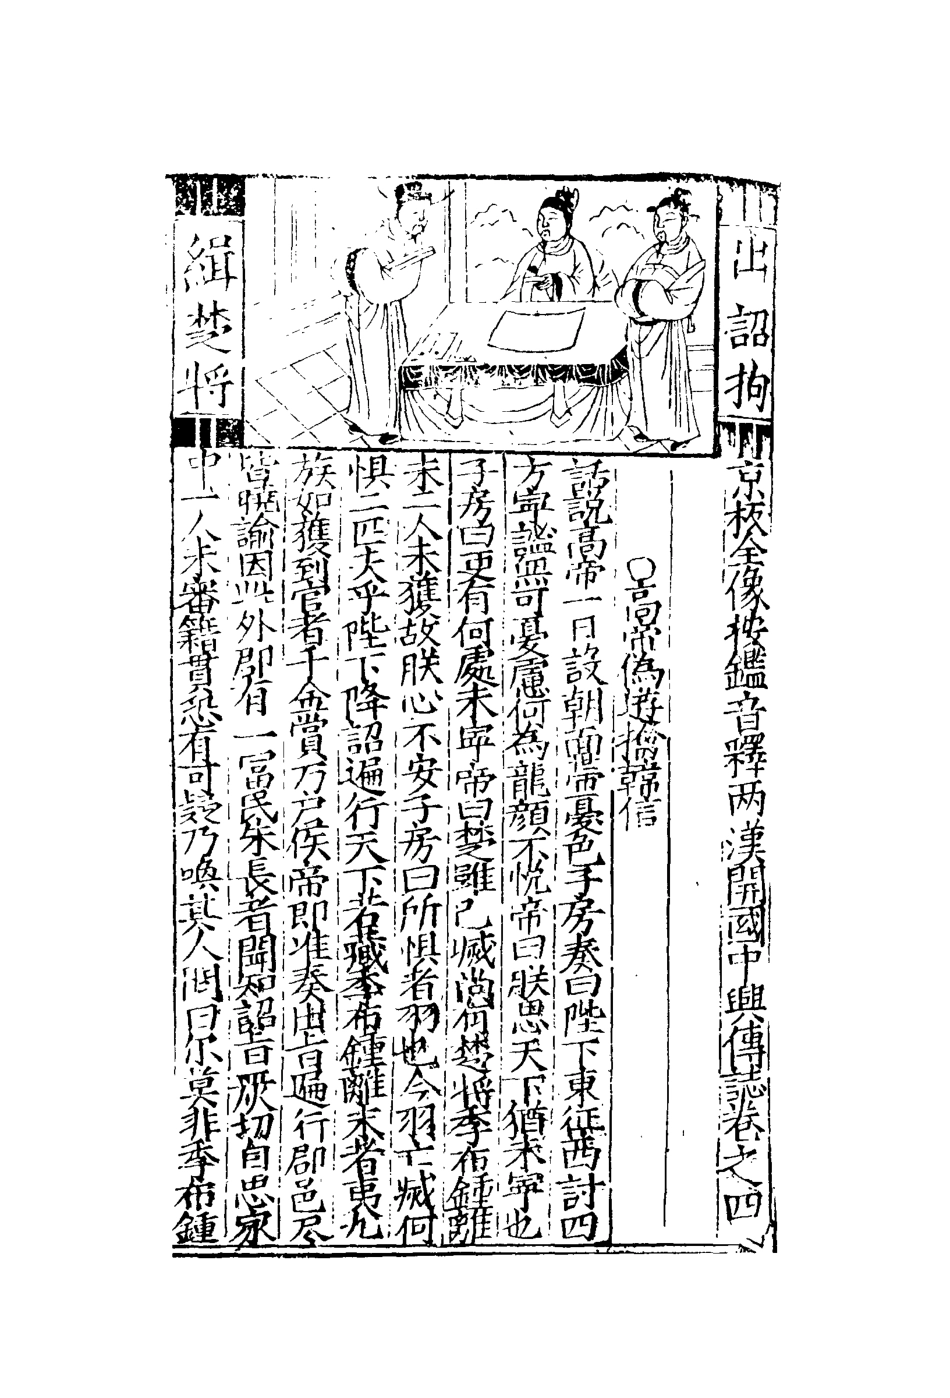 出詔拘
緝楚将
京板全像按鑑音釋两漢開國中興傳誌卷之四
○高帝偽遊擒韓信
話說高帝一日設朝面帶憂色子房奏曰陛下東征西討四
方寧謐無可憂慮何為龍顔不悅帝曰朕思天下猶未寧也
子房曰更有何處未寧帝曰楚雖已滅尚有楚将季布鍾離
未二人未獲故朕心不安子房曰所惧者羽也今羽亡滅何
惧二匹夫乎陛下降詔遍行天下若藏季布鍾離末者夷九
族如獲到官者千金賞万户侯帝即准奏出旨遍行郡邑尽
皆曉諭因此外郡有一富民朱長者聞知詔旨严切自思家
中一人未審籍貫恐有可疑乃喚其人問曰尔莫非季布鍾